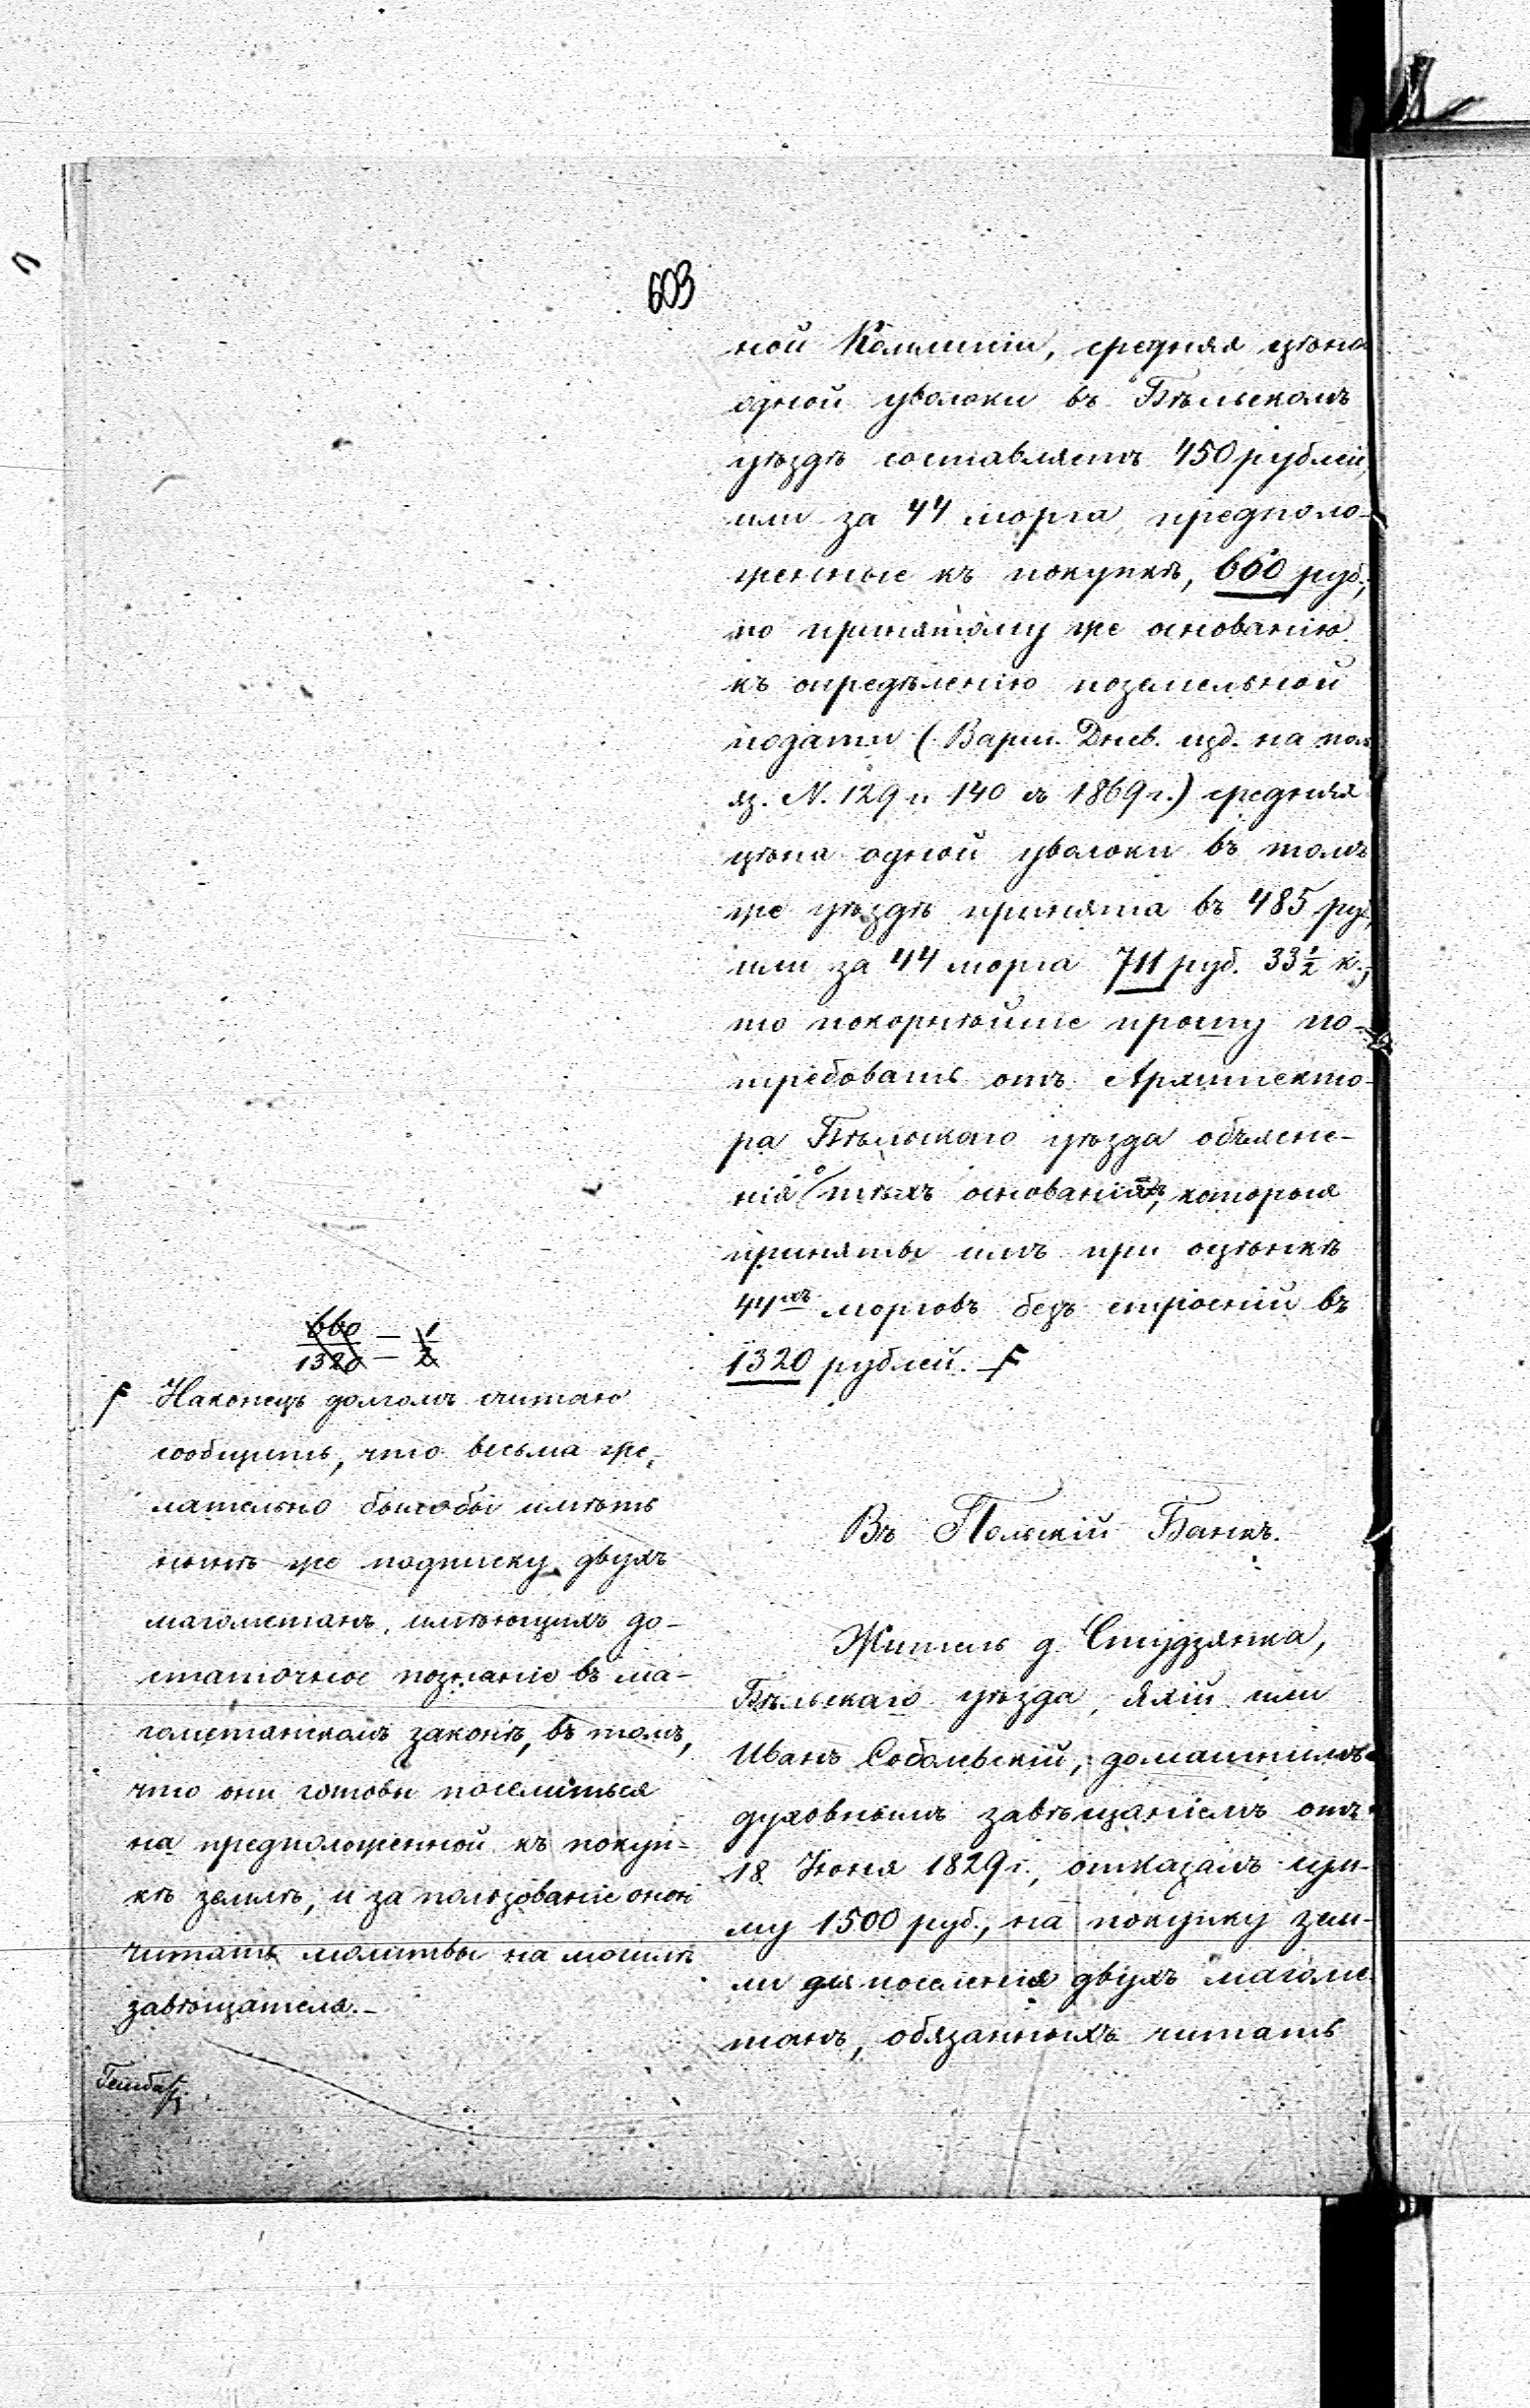 603
ной Коммисіи, средняя цѣна
одной уволоки въ Бѣльскомъ
уѣздѣ составляетъ 450 рублей,
или за 44 морга, предполо-
женные къ покупкѣ, 660 руб.,
по принятому же основанію
къ опредѣленію поземельной
подати (Варш. Днев. изд. на пол.
яз. N. 129 и 140 съ 1869 г.) средняя
цѣна одной уволоки въ томъ
же уѣздѣ принята въ 485 руб,
или за 44 морга 711 руб. 33 1/2 к.,
то покорнѣйше прошу по-
требовать отъ Архитекто-
ра Бѣльскаго уѣзда объясне-
нія о тѣхъ основаніяхъ, которыя
приняты имъ при оцѣнкѣ
44хъ морговъ безъ строеній въ
1320 рублей. F
660/1320 = 1/2
F Наконецъ долгомъ считаю
сообщить, что весьма же-
лательно былобы имѣть
нынѣ же подписку двухъ
магометанъ, имѣющихъ до-
статочное познаніе въ ма-
гометанскомъ законѣ, въ томъ,
что они готовы поселиться
на предположенной къ покуп-
кѣ землѣ, и за пользованіе оною
читать молитвы на могилѣ
завѣщателя.
Въ Польскій Банкъ.
Житель д. Студзянка,
Бѣльскаго уѣзда, Яхій или
Иванъ Собольскій, домашнимъ
духовнымъ завѣщаніемъ отъ
18 Іюня 1829 г., отказалъ сум-
му 1500 руб., на покупку зем-
ли для поселенія двухъ магоме-
танъ, обязанныхъ читать